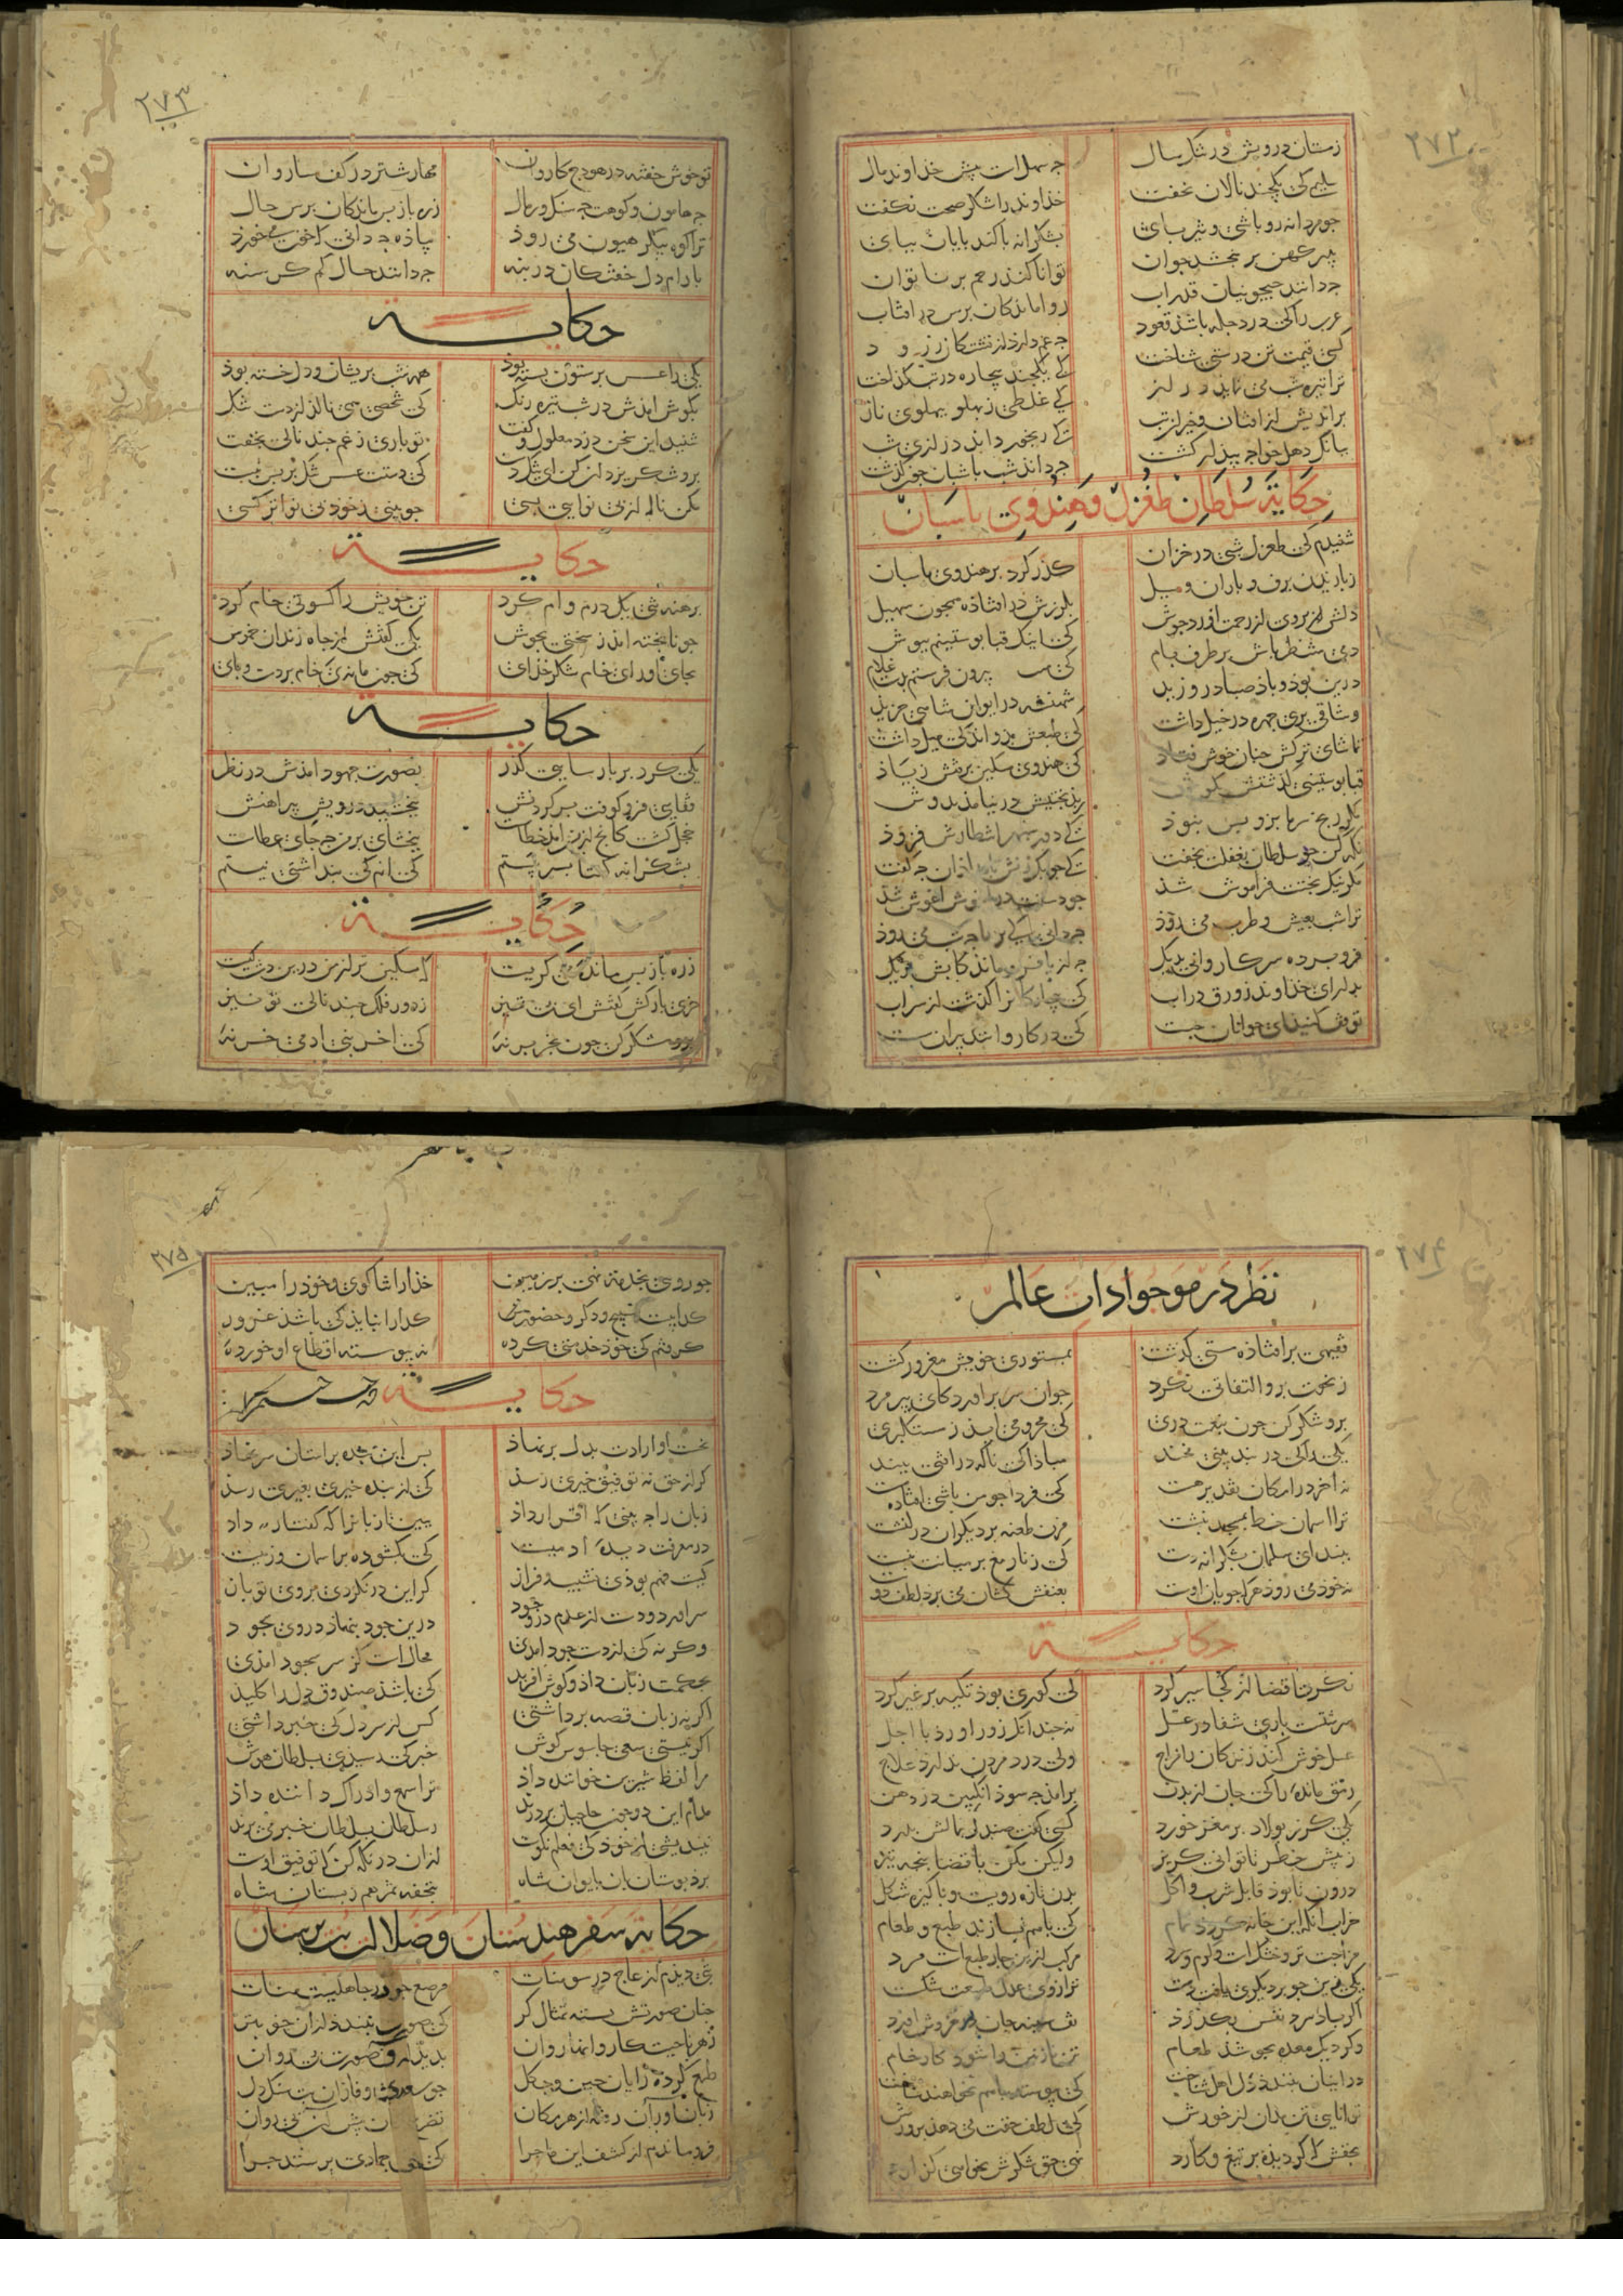 ۲۷۲
زمستان درویش در تنک سال جه سهل است پیش خداوند مال
سلیمی کی یکچند نالان نخفت خداوند را شکر صحت نکفت
جو مردانه رو باشی و تیز پای بشکرانه با کند پایان بپای
بپیر کهن بر ببخشد جوان توانا کند رحم بر ناتوان
جه دانند جیحونیان قدر اب ز واماندکان پرس در افتاب
عرب را کی در دجله باشد قعود جه غم دارد از تشنکان زرود
کسی قیمت تن درستی شناخت کی یکچند بیچاره در تب کداخت
ترا تیره شب کی نماید دراز کی غلطی ز پهلو بپهلوی ناز
براندیش از افتان و خیزان تب کی رنجور داند درازی شب
ببانک دهل خواجه بیدار کشت جه داند شب پاسبان جون کذشت
حکایة سلطان طغرل و هندوی پاسبان
شنیدم کی طغرل شبی در خزان کذر کرد بر هندوی پاسبان
ز باریدن برف و باران و سیل بلرزش در افتاده همجون سهیل
دلش بر وی از رحمت اورد جوش کی اینک قبا پوستینم بپوش
دمی منتظر باش بر طرف بام کی بیرون فرستم بدست غلام
درین بود و باد صبا در وزید شهنشه در ایوان شاهی خزید
وشاقی پری جهره در خیل داشت کی طبعش بذو اندکی میل داشت
تماشای ترکش جنان خوش فتاد کی هندوی مسکین برفتش ز یاد
قبا پوستینی کذشتش بکوش ز بدبختیش در نیامد بدوش
مکر رنج سرما برو بس نبود کی دور سپهر انتظارش فزود
نکه کن جو سلطان بغفلت بخفت کی جوبک زنش بامدادان جه کفت
مکر نیک بختت فراموش شد جو دستت در اغوش اغوش شد
ترا شب بعیش و طرب می رود جه دانی کی بر ما جه شب می رود
فرو برده سر کاروانی بدیک جه از پا فرو ماندکانش بریک
بدار ای خداوند زورق در اب کی بیچارکان را کذشت از سر اب
توقف کنید ای جوانان جست کی در کاروانند پیران سست
۲۷۳
تو خوش خفته در هودج کاروان مهار شتر در کف ساروان
جه هامون و کوهت جه سنک و رمال ز ره باز پس ماندکان پرس حال
ترا کوه پیکر هیون می روذ پیاده جه دانی کی خون میخورد
بارام دل خفتکان در بنه جه دانند حال کم کرسنه
حکایة
یکی را عسس بر ستون بسته بود همه شب پریشان و دلخسته بود
بکوش امدش در شب تیره رنک کی شخصی همی نالد از دست تنک
شنید این سخن دزد مغلول و کفت تو باری ز غم جند نالی بخفت
برو شکر یزدان کن ای تنکدست کی دستت عسس تنک بر پس نبست
مکن ناله از بی نوایی بسی جو بینی ز خود بی نواتر کسی
حکایة
برهنه تنی یک درم وام کرد تن خویش را کسوتی خام کرد
جو ناپخته امد ز سختی بجوش یکی کفتش از جاه زندان خموش
بجای اور ای خام شکر خدای کی جون ما نه ای خام بر دست و پای
حکایة
یکی کرد بر پارسایی کذر بصورت جهود امدش در نظر
قفایی فرو کوفت بر کردنش ببخشید درویش پیراهنش
خجل کشت کانج از من امد خطاست ببخشای بر من جه جای عطاست
بشکرانه کفتا بسر بیستم کی انم کی پنداشتی نیستم
حکایة
ز ره باز پس ماندهٔ می کریست کی مسکین تر از من درین دشت کیست
خری بارکش کفتش ای بی تمیز ز جور فلک جند نالی تو نیز
برو شکر کن جون بخر بر نهٔ کی اخر بنی ادمی خر نهٔ
۲۷۴
نظر در موجوادات عالم
فقیهی بر افتاده مستی کذشت بمستوری خویش مغرور کشت
ز نخوت برو التفاتی نکرد جوان سر براورد کای پیر مرد
برو شکر کن جون بنعمت دری کی محرومی اید ز مستکبری
یکی را کی در بند بینی مخند مبادا کی ناکه در افتی ببند
نه اخر در امکان تقدیر هست کی فردا جو من باشی افتاده مست
ترا اسمان خط بمسجد نبشت مزن طعنه بر دیکران در کنشت
ببند ای مسلمان بشکرانه دست کی زنار مغ بر میانت نبست
نه خود می روذ هرکه جویان اوست بعنفش کشان می برد لطف دوست
حکایة
نکر تا قضا از کجا سیر کرد کی کوری بود تکیه بر غیر کرد
سرشتست باری شفا در عسل نه جندانک زور اورد با اجل
عسل خوش کند زندکان را مزاج ولی درد مردن ندارد علاج
رمق ماندهٔ را کی جان از بدن برامد جه سود انکبین در دهن
یکی کرز پولاد بر مغز خورد کسی کفت صندل بمالش بدرد
ز پیش خطر تا توانی کریز ولیکن مکن با قضا پنجه تیز
درون تا بود قابل شرب و اکل بدن تازه رویست و پاکیزه شکل
خراب انکه این خانه کردد تمام کی با هم نسازند طبع و طعام
مزاجت تر و خشک است و کرم و سرد مرکب ازین جار طبع است مرد
یکی زین جو بر دیکری یافت دست ترازوی عدل طبیعت شکست
اکر باد سرد نفس نکذرذ تف سینه جان در خروش اورد
وکر دیک معده نجوشد طعام تن نازنین را شود کار خام
در اینان نبندد دل اهل شناخت کی پیوسته با هم نخواهند ساخت
توانایی تن مدان از خورش کی لطف حقت می دهد پرورش
بحقش کی کر دیده بر تیغ و کارد نهی حق شکرش نخواهی کزارد
۲۷۵
جو رویی بخدمت نهی بر زمین خدا را ثنا کوی و خود را مبین
کداییست تسبیح و ذکر و حضور کدا را نباید کی باشد غرور
کرفتم کی خود خدمتی کردهٔ نه پیوسته اقطاع او خوردهٔ
حکایة
نخست او ارادت بدل بر نهاد پس این بنده بر استان سر نهاد
کر از حق نه توفیق خیری رسد کی از بنده خیری بغیری رسد
زبان را جه بینی کی اقرار داد ببین تا زبان را که کفتار داد
در معرفت دیدهٔ ادمیست کی بکشوده بر اسمان و زمیست
کیت فهم بودی نشیب و فراز کر این در نکردی بروی تو باز
سر اورد و دست از عدم در وجود درین جود بنهاد و در وی سجود
وکرنه کی از دست جود امدی محالست کز سر سجود امدی
بحکمت زبان داد و کوش افرید کی باشد صندوق دل را کلید
اکر نه زبان قصه برداشتی کس از سر دل کی خبر داشتی
اکر نیستی سعی جاسوس کوش خبر کی رسیدی بسلطان هوش
مرا لفظ شیرین خواننده داد ترا سمع و ادراک داننده داد
مدام این دو جون حاجبان بر درند ز سلطان بسلطان خبر می برند
جه اندیشی از خود کی فعلم نکوست از ان در نکه کن که توفیق اوست
برد بوستان بان بایوان شاه بتحفه ثمر هم ز بستان شاه
حکایة سفر هندستان و ضلالت بت پرستان
بتی دیدم از عاج در سومنات مرصع جو در جاهلیت منات
جنان صورتش بسته تمثال کر کی صورت نبندد از ان خوبتر
ز هر ناحیت کاروانها روان بدیدار ان صورت بی روان
طمع کرده رایان جین و جکل جو سعدی وفا زان بت سنکدل
زبان اوران رفته از هر مکان تضرع کنان پیش ان بی زبان
فرو ماندم از کشف این ماجرا کی حیی جمادی پرستد جرا